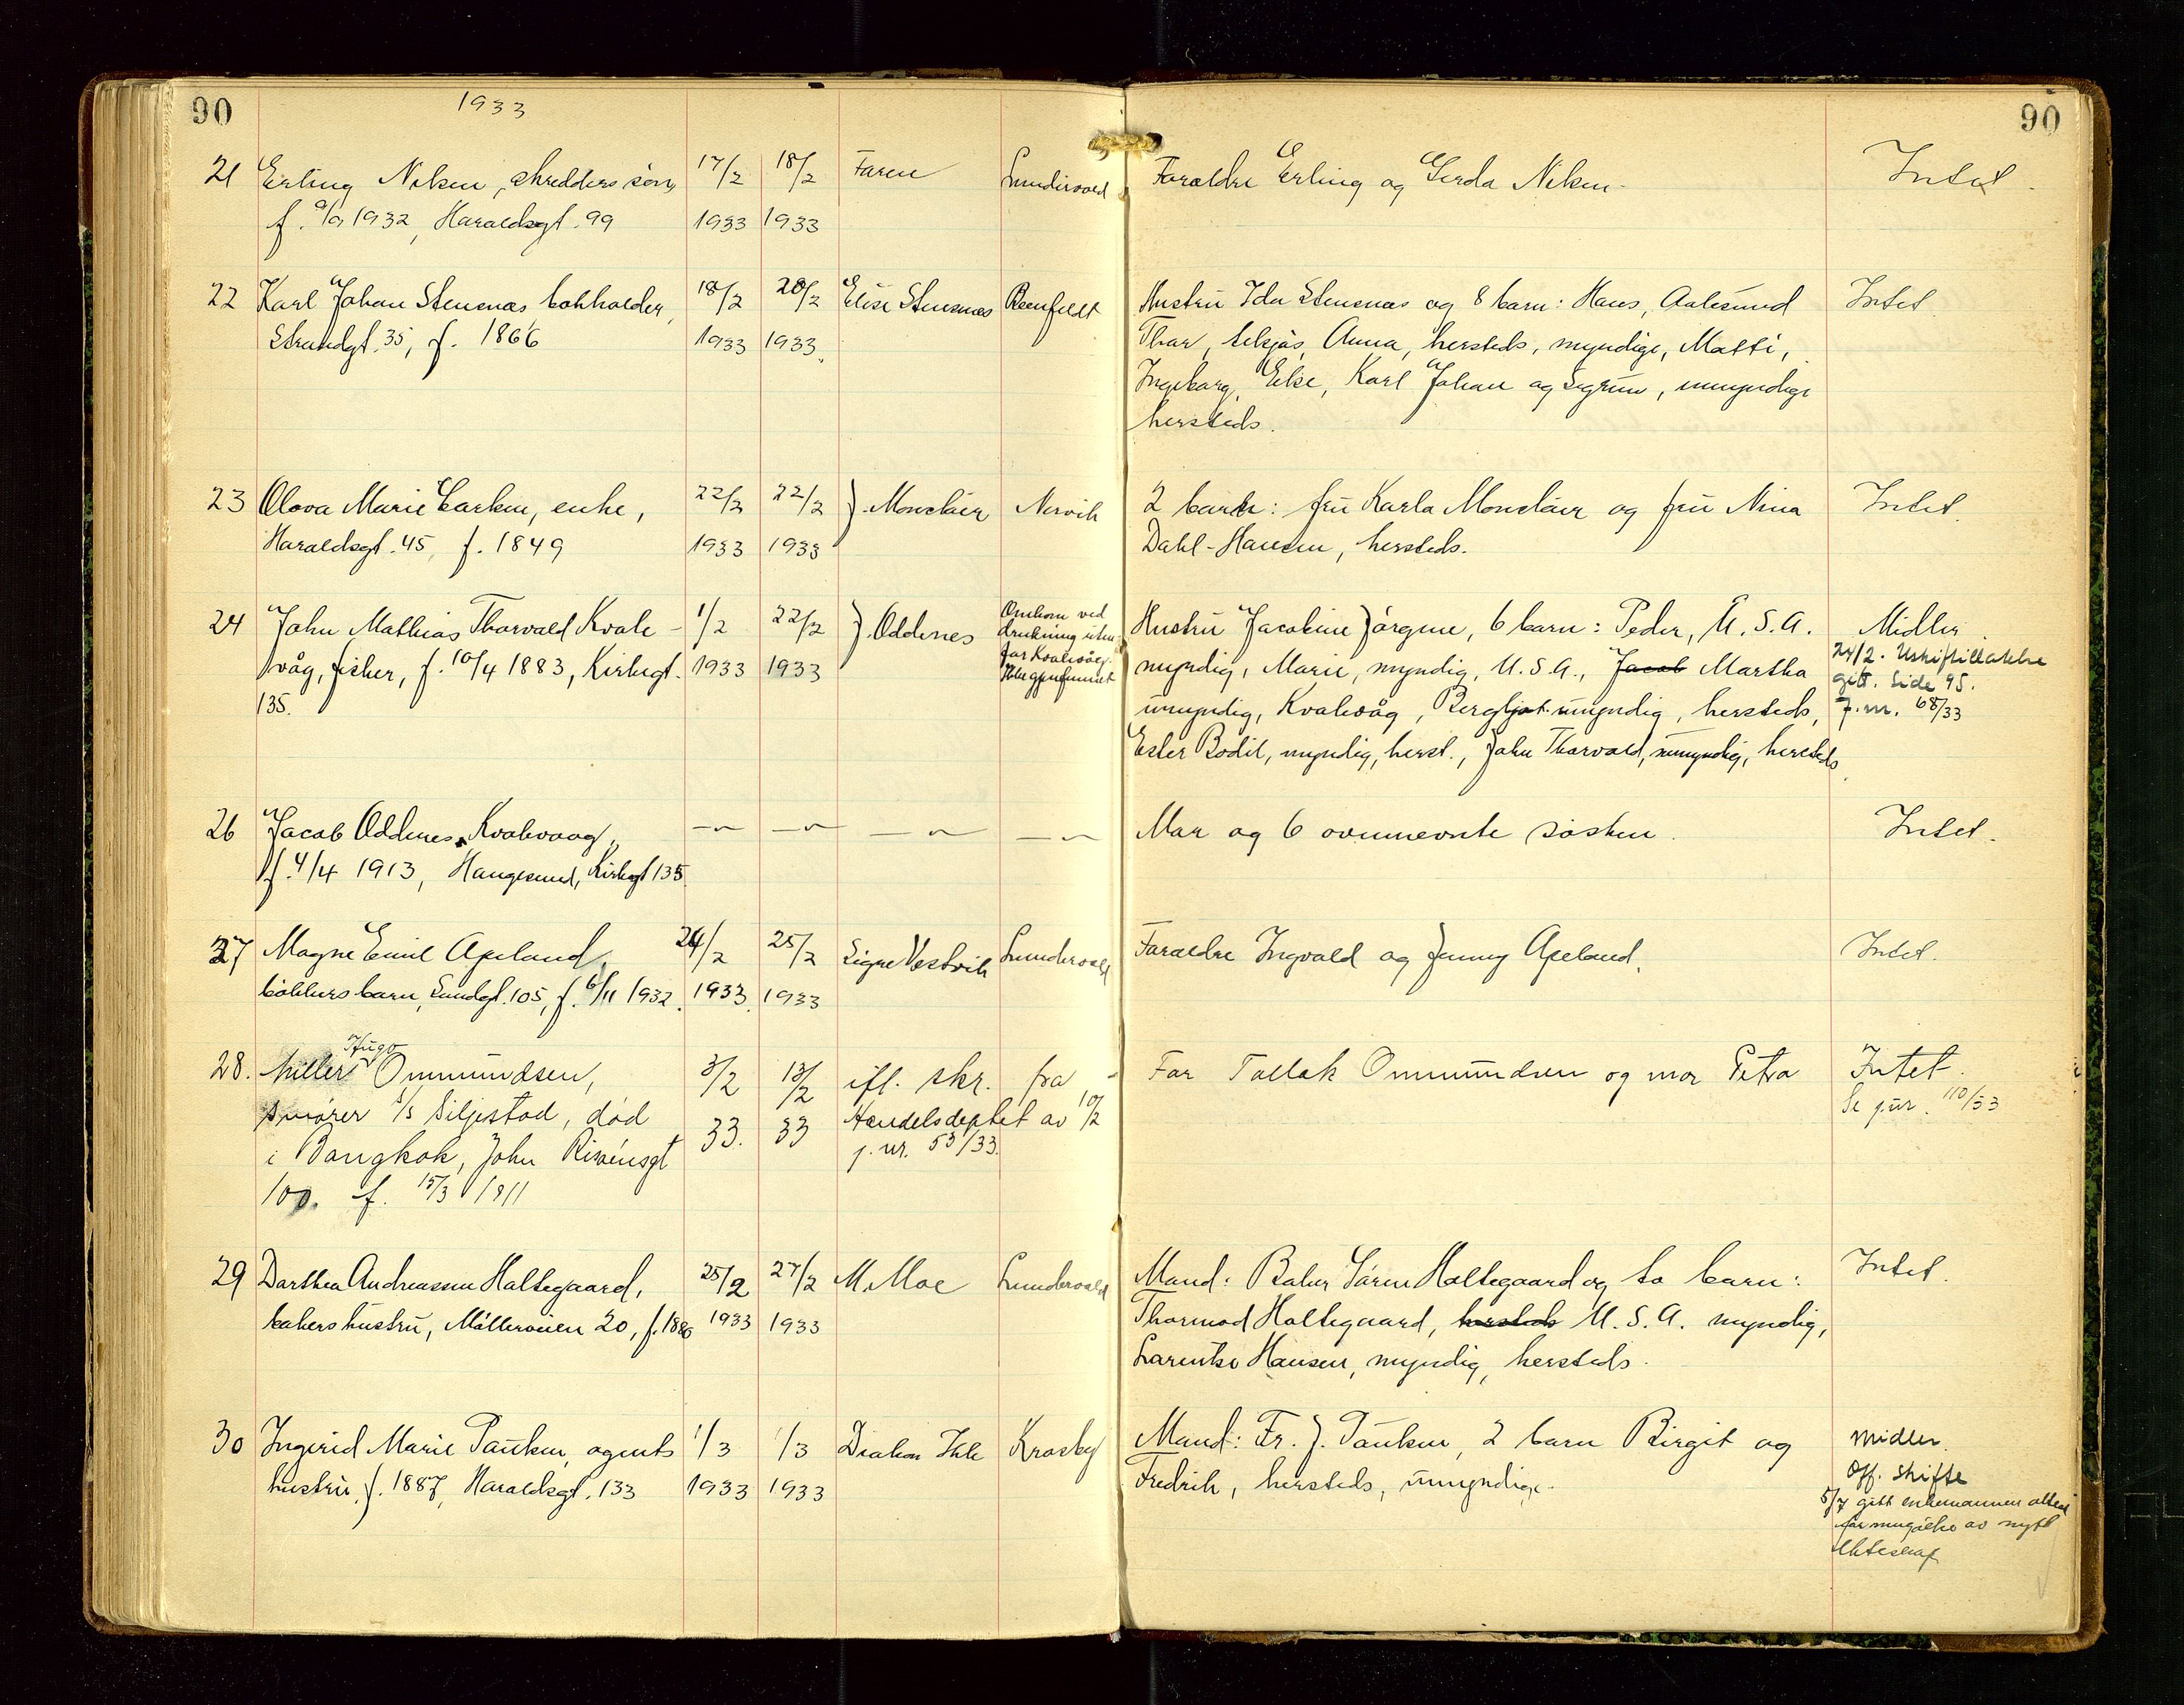 90
1933
90
21 Erling Nilsen, skredders sön, 17/2 18/2 Faren Lundervold Foreldre Erling og Gerda Nilsen. Intet.
f. 9/9 1932, Haraldsgt. 99 1933 1933
22 Karl Johan Stensnæs, bokholder, 18/2 20/2 Elise Stensnæs Hustru Ida Stensnæs og 8 barn: Hans, Aalesund Intet.
Strandgt. 35, f. 1866 1933 1933. Thor, tilsjös, Anna, hersteds, myndige, Matti,
Ingeborg, Else, Karl Johan og Sigrun, umyndige
hersteds.
23 Olava Marie Larsen, enke, 22/2 22/2 J. Monclair Nervik 2 barn: fru Karla Monclair og fru Nina Intet.
Haraldsgt. 45, f. 1849 1933 1933 Dahl-Hansen, hersteds.
24 John Mathias Thorvald Kvale- 1/2 22/2 J. Oddenes Omkom ved Hustru Jacobine Jörgine, 6 barn: Peder, U.S.A. Midler.
drukning uten-
våg, fisker, f. 10/4 1883, Kirkegt. 1933 1933 for Kvalevåg. myndig, Marie, myndig, U.S.A., Jacob Martha 24/2. Uskiftillatelse
Ikke gjenfunnet gitt. Side 95.
135. umyndig, Kvalevåg, Bergljot umyndig, hersteds, J. nr. 68/33
Ester Bodil, myndig, herst., John Thorvald, umyndig, hersteds.
26 Jacob Oddenes Kvalevaag, —~ —~ —~ —~ Mor og 6 ovennevnte søsken. Intet.
f. 4/4 1913, Haugesund, Kirkegt 135
27 Magne Emil Apeland, 24/2 25/2 Signe Vestvik Lundervold Foreldre Ingvald og Jenny Apeland. Intet.
bökkers barn, Sundgt. 105, f. 6/11 1932. 1933. 1933
Hugo
28. Miller Ommundsen, 3/2 13/2 ifl. skr. fra Far Tollak Ommundsen og mor Petra Intet.
smörer s/s Siljestad, död 33. 33 Handelsdeptet av 10/2 Se jnr. 110/33
i Bangkok, John j. nr. 53/33.
100. f. 15/3 1911
29 Dorthea Andreassen Holtegaard, 25/2 27/2 M. Moe Lundervold Mand: Baker Sören Holtegaard og to barn: Intet.
bakers hustru, Mölleveien 20, f. 1880 1933 1933 Thormod Holtegaard, hersteds U.S.A. myndig,
Larentse Hansen, myndig, hersteds.
30 Ingerid Marie Paulsen, agents 1/3 1/3 Diakon Krosby Mand: Fr. J. Paulsen, 2 barn Birgit og Midler.
hustru, f. 1887, Haraldsgt. 133 1933 1933 Fredrik, hersteds, umyndige. Off. skifte
5/7 gitt enkemannen attest
for inngåelse av nytt
ekteskap